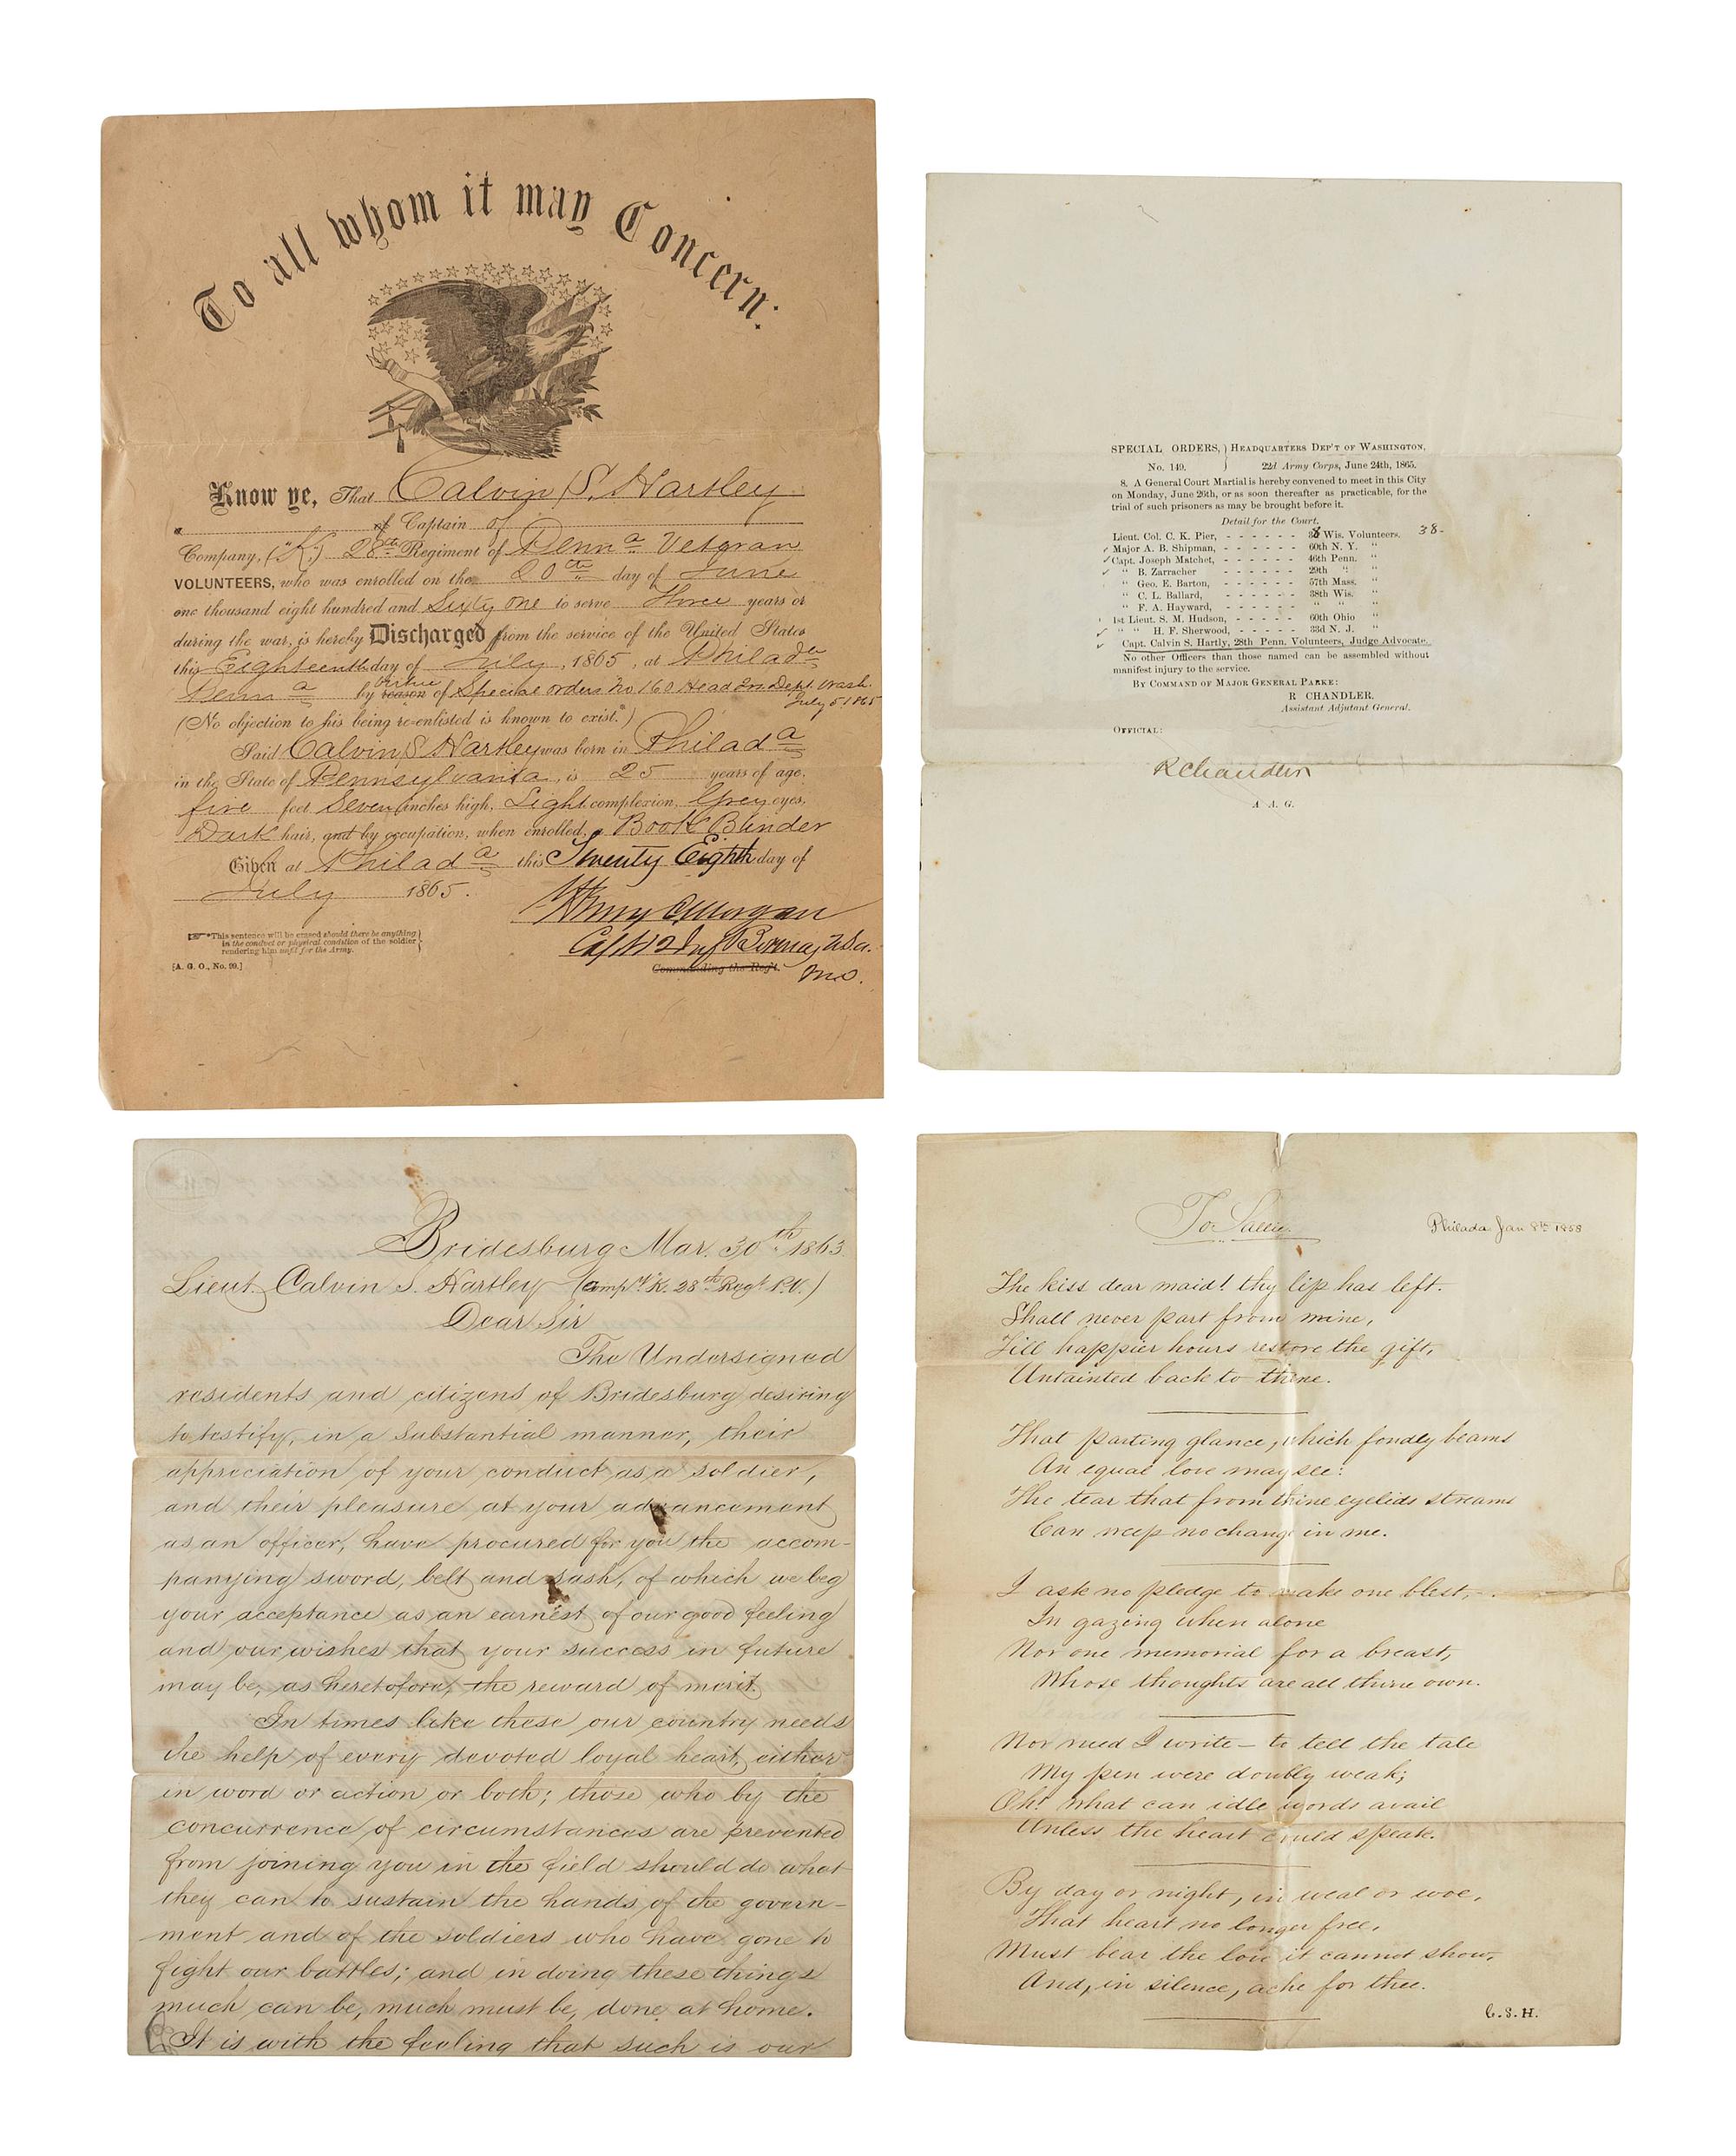 To all whom it may Concern:
Know ye, That Calvin S. Hartley
a of Captain of
Company, ("K,") 28th Regiment of Penna Veteran
VOLUNTEERS, who was enrolled on the 20th day of June
one thousand eight hundred and Sixty one to serve Three years or
during the war, is hereby Discharged from the service of the United States
this Eighteenth day of July, 1865, at Philada
Penna by reason virtue of Special orders No 160 Head Qrs Dept Wash.
July 5. 1865
(No objection to his being re-enlisted is known to exist.*)
Said Calvin S Hartley was born in Philada
in the State of Pennsylvania, is 25 years of age,
five feet Seven inches high, Light complexion, Grey eyes,
Dark hair, and by occupation, when enrolled, a Book Blinder
Given at Philada this Twenty Eighth day of
July 1865.
Henry C Morgan
Capt 12 Inf U.S.A.
Commanding the Reg't.
*This sentence will be erased should there be anything
in the conduct or physical condition of the soldier
rendering him unfit for the Army.
[A. G. O., No. 99.]
SPECIAL ORDERS, } HEADQUARTERS DEP'T OF WASHINGTON,
No. 149. 22d Army Corps, June 24th, 1865.
8. A General Court Martial is hereby convened to meet in this City
on Monday, June 26th, or as soon thereafter as practicable, for the
trial of such prisoners as may be brought before it.
Detail for the Court.
Lieut. Col. C. K. Pier, - - - - - - 38 Wis. Volunteers. 38-
✓ Major A. B. Shipman, - - - - - - 60th N. Y. "
✓ Capt. Joseph Matchet, - - - - - - 46th Penn. "
✓ " B. Zarracher - - - - - - 29th " "
" Geo. E. Barton, - - - - - - 57th Mass. "
" C. L. Ballard, - - - - - - 38th Wis. "
" F. A. Hayward, - - - - - - " " "
1st Lieut. S. M. Hudson, - - - - - 60th Ohio "
✓ " " H. F. Sherwood, - - - - - 33d N. J. "
✓ Capt. Calvin S. Hartly, 28th Penn. Volunteers, Judge Advocate.
No other Officers than those named can be assembled without
manifest injury to the service.
BY COMMAND OF MAJOR GENERAL PARKE:
R CHANDLER,
Assistant Adjutant General.
OFFICIAL:
R Chandler
A A. G.
Bridesburg Mar. 30th 1863
Lieut. Calvin S. Hartley (Comp'y K. 28th Regt P.V.)
Dear Sir
The Undersigned
residents and citizens of Bridesburg desiring
to testify, in a substantial manner, their
appreciation of your conduct as a soldier,
and their pleasure at your advancement
as an officer, have procured for you the accom-
panying sword, belt and sash, of which we beg
your acceptance as an earnest of our good feeling
and our wishes that your success in future
may be, as heretofore, the reward of merit.
In times like these our country needs
the help of every devoted loyal heart, either
in word or action or both; those who by the
concurrence of circumstances are prevented
from joining you in the field should do what
they can to sustain the hands of the govern-
ment and of the soldiers who have gone to
fight our battles; and in doing these things
much can be, much must be, done at home.
It is with the feeling that such is our
To Sallie.
Philada Jan 8th 1858
The kiss dear maid! thy lip has left.
Shall never part from mine,
Till happier hours restore the gift,
Untainted back to thine.
That parting glance, which fondly beams
An equal love may see:
The tear that from thine eyelids streams
Can weep no change in me.
I ask no pledge to make one blest,
In gazing when alone
Nor one memorial for a breast,
Whose thoughts are all thine own.
Nor need I write – to tell the tale
My pen were doubly weak;
Oh! what can idle words avail
Unless the heart could speak.
By day or night, in weal or woe,
That heart no longer free,
Must bear the love it cannot show,
And, in silence, ache for thee.
C. S. H.